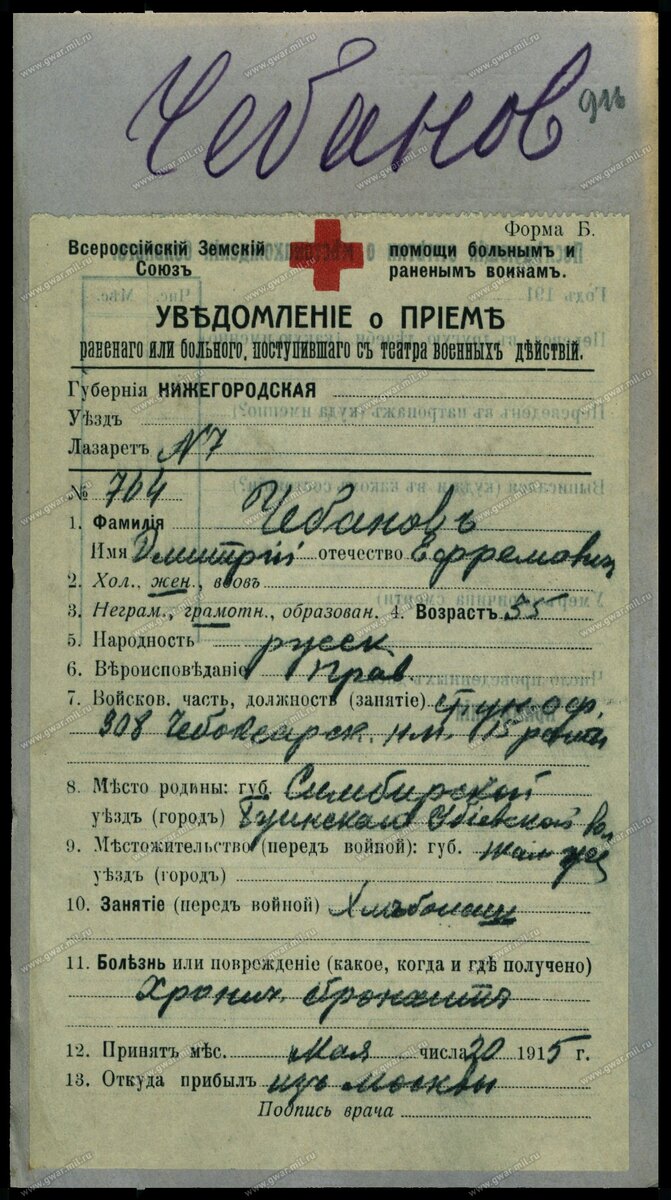 Чебанов
Форма Б.
Всероссійскій Земскій
Союзъ
помощи больнымъ и
раненымъ воинамъ.
УВѢДОМЛЕНІЕ о ПРІЕМѢ
раненаго или больного, поступившаго съ театра военныхъ дѣйствій.
Губернія НИЖЕГОРОДСКАЯ
Уѣздъ
Лазаретъ N7
№ 764
1. Фамилія Чебановъ
Имя Дмитрій отчество Ефремович
2. Хол., жен., вдовъ
3. Неграм., грамотн., образован. 4. Возрастъ 35
5. Народность русск
6. Вѣроисповѣданіе прав.
7. Войсков. часть, должность (занятіе) ст ун оф.
308 Чебоксарск. п. 15 роты
8. Мѣсто родины: губ. Симбирской
уѣздъ (городъ) Буинскаго
9. Мѣстожительство (передъ войной): губ. там же
уѣздъ (городъ)
10. Занятіе (передъ войной) Хлѣбопаш
11. Болѣзнь или поврежденіе (какое, когда и гдѣ получено)
Хронич. бронхитъ
12. Принятъ мѣс. Мая числа 20 1915 г.
13. Откуда прибылъ изъ Москвы
Подпись врача
www.gwar.mil.ru